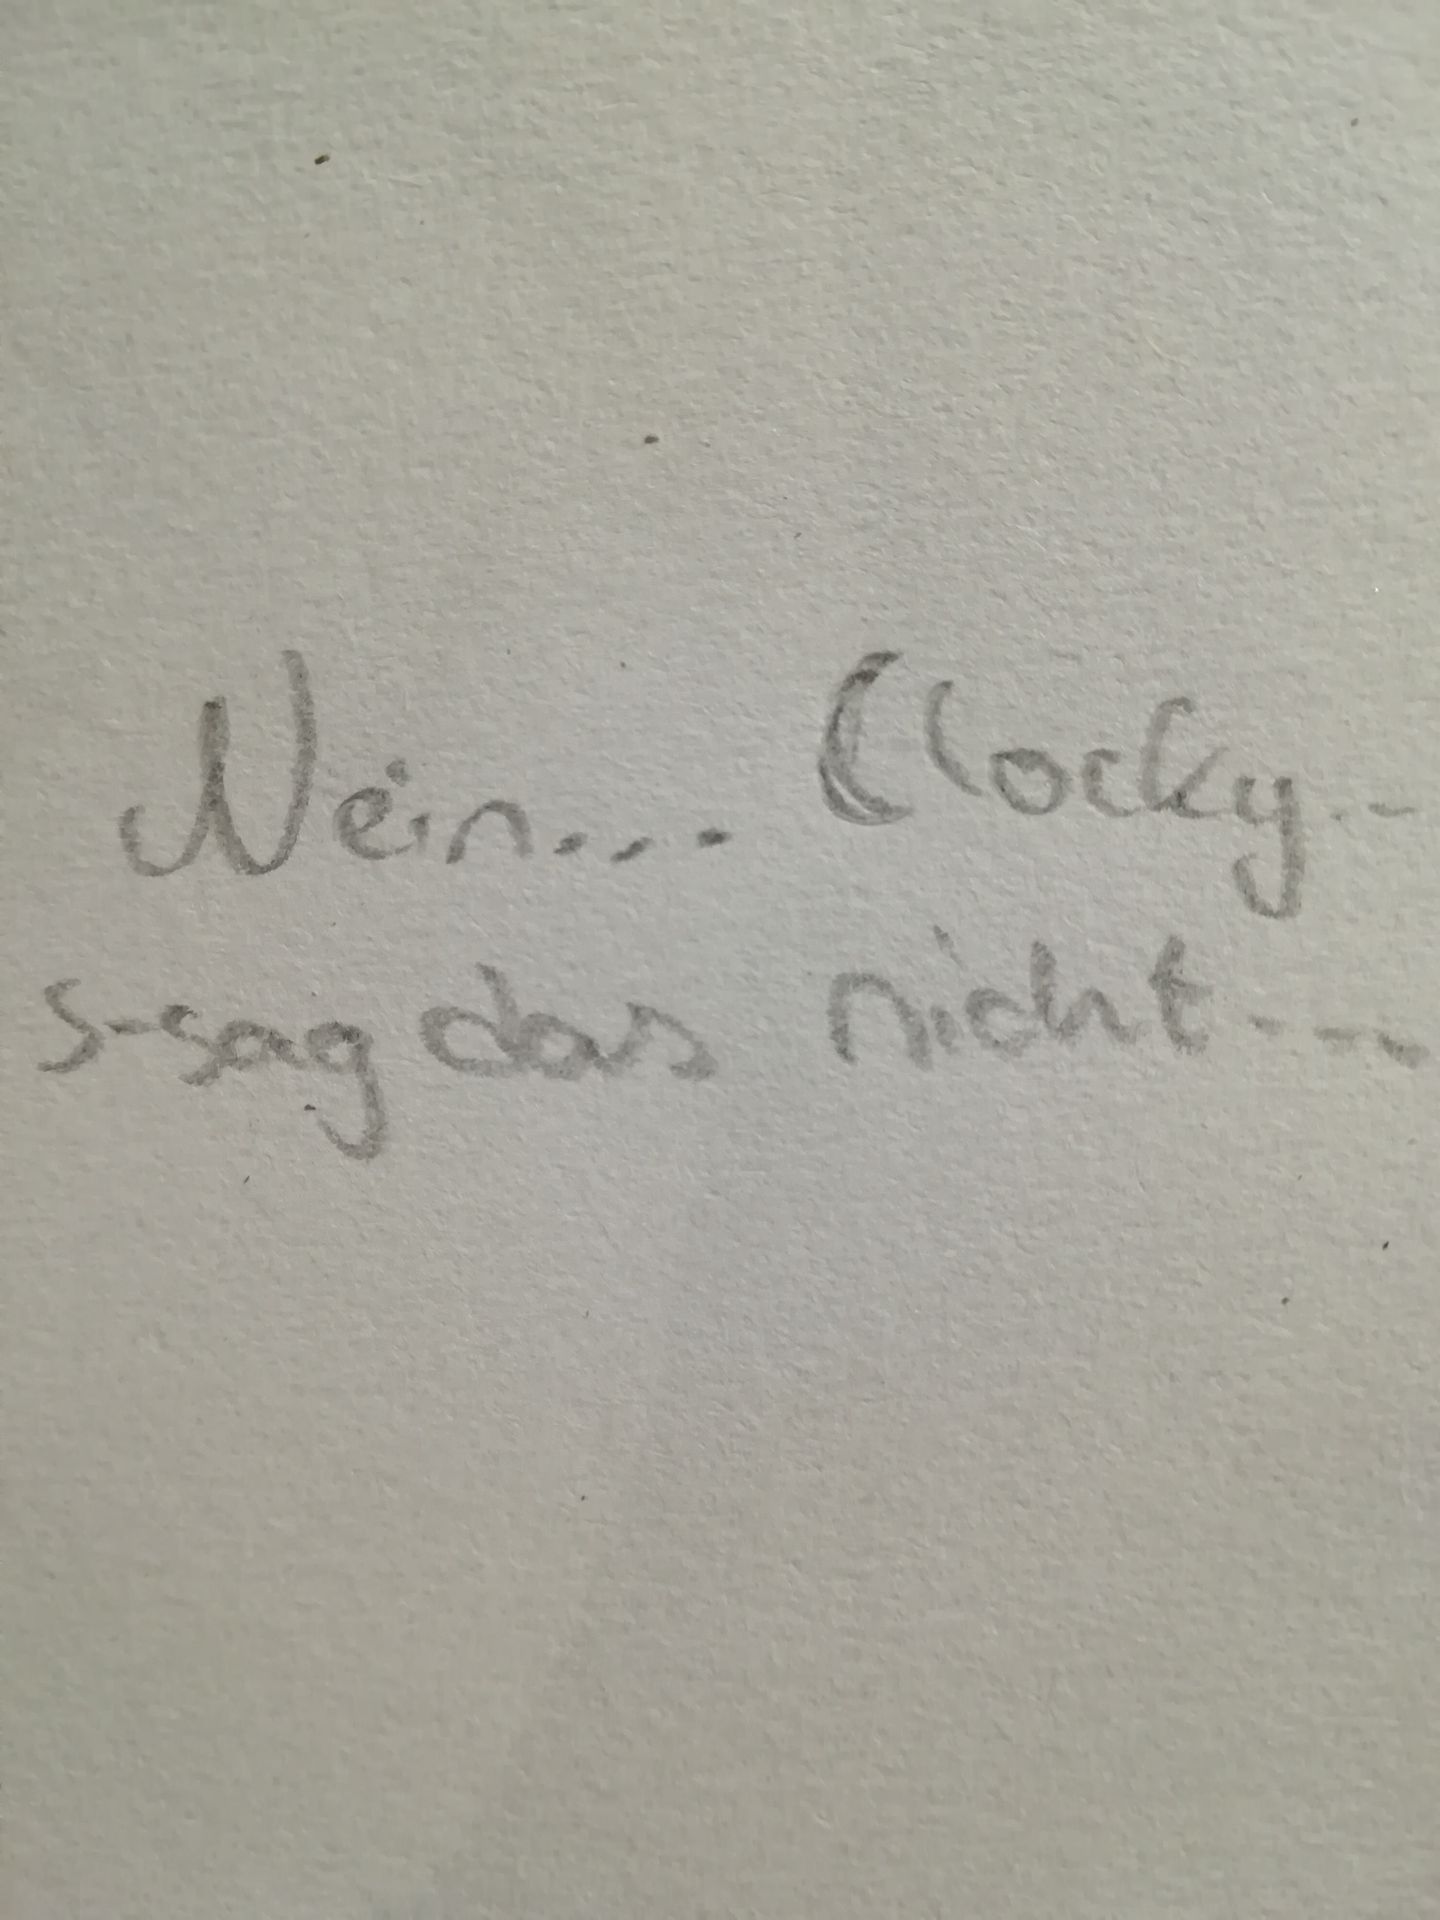 Nein... Clocky..
s-sag das nicht...